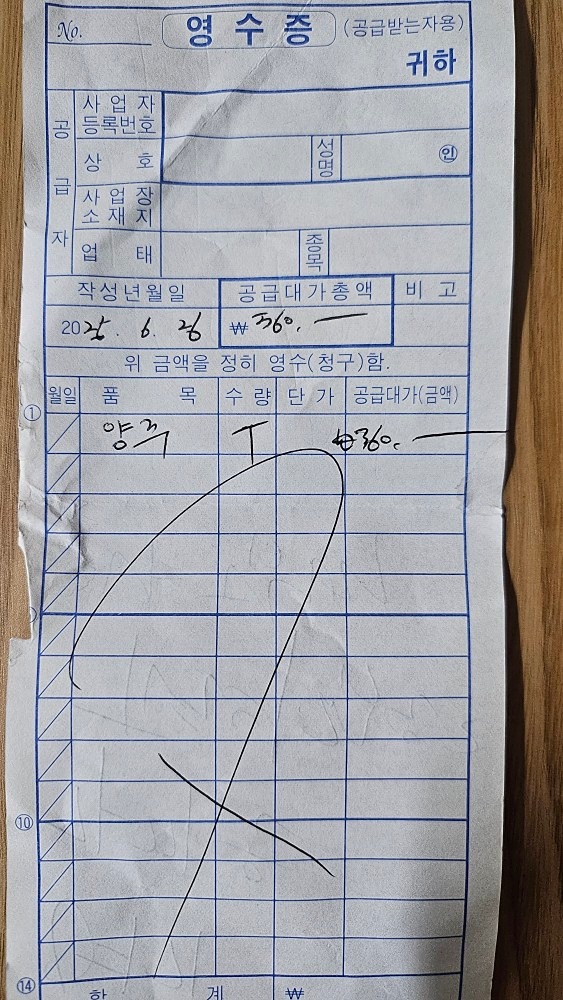 No. 영수증 (공급받는자용)
귀하
공급자
사업자 등록번호
상 호 성명 인
사업장 소재지
업 태 종목
작성년월일 공급대가총액 비고
2025. 6. 26 ₩ 360.—
위 금액을 정히 영수(청구)함.
월일 품 목 수량 단가 공급대가(금액)
① 양주 ₩360.—
⑩
⑭
합 계 ₩